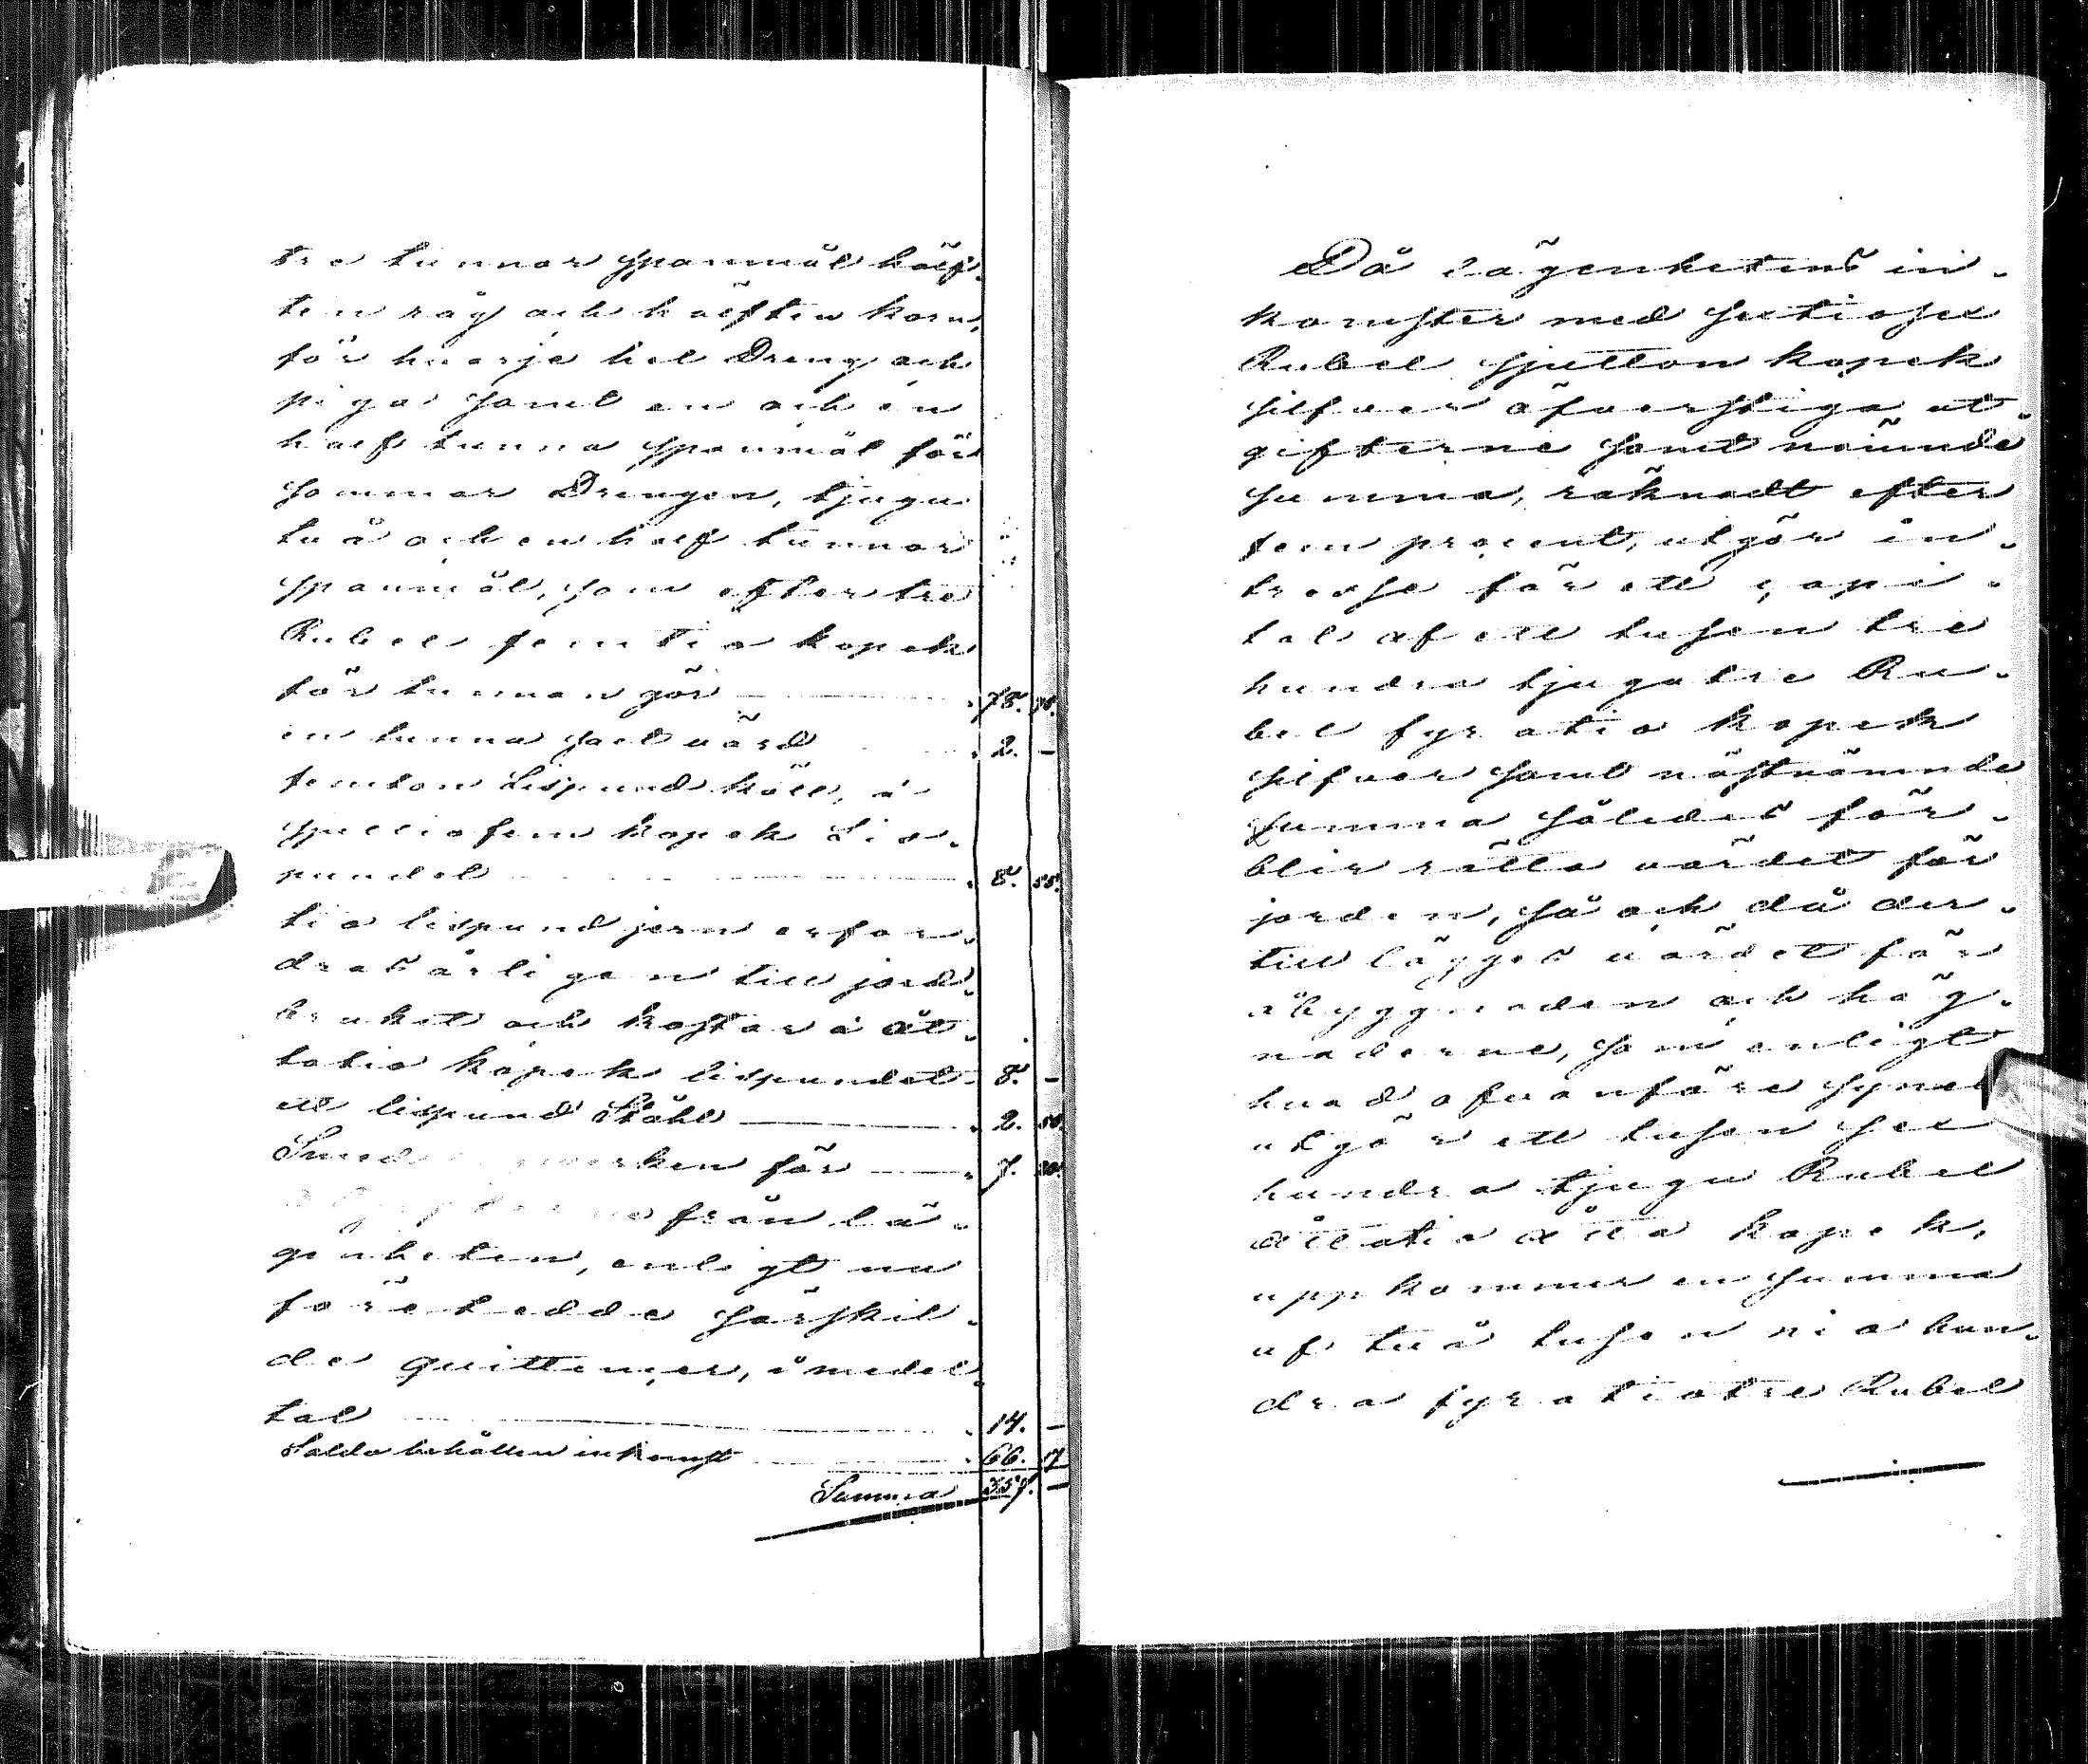 tre tunnor spanmål hälf-
ten råg och hälften korn,
för hvarje hel Dreng och
piga samt en och en
half tunna spanmål för
sommar Drengen, tjugu
två och en half tunnor
spanmål, som efter tre
Rubel femtio kopek
för tunnan gör . 78.
en tunna salt värd . 2. –
femton Lispund höll, à
femtiofem kopek Lis-
pundet . 8. 55.
tio lispund jern erfor-
dras årligen till jord-
bruket och kostar à åt-
tatio kopek lispundet 8. –
ett lispund Ståhl . 2. 50.
för . 7.
från lä-
genheten, enligt nu
företedde särskil-
de quittencer, i medel-
tal . 14. –
Saldo behållen inkomst . 66. 17
Summa 357. –
Då lägenhetens in-
komster med sextiosex
Rubel sjutton kopek
silfver öfverstiga ut-
gifterne samt nämnde
summa, räknadt efter
fem procent, utgör in-
tresse för ett capi-
tal af ett tusen tre
hundra tjugutre Ru-
bel fyratio kopek
silfver samt nästnämnde
summa således för-
blir rätta värdet för
jorden, så och då der-
till lägges värdet för
åbyggnaden och häg-
naderne, som enligt
hvad ofvanföre synes
utgör ett tusen sex
hundra tjugu Rubel
åttatio åtta kopek,
uppkommer en summa
af två tusen nio hun-
dra fyratiotre Rubel